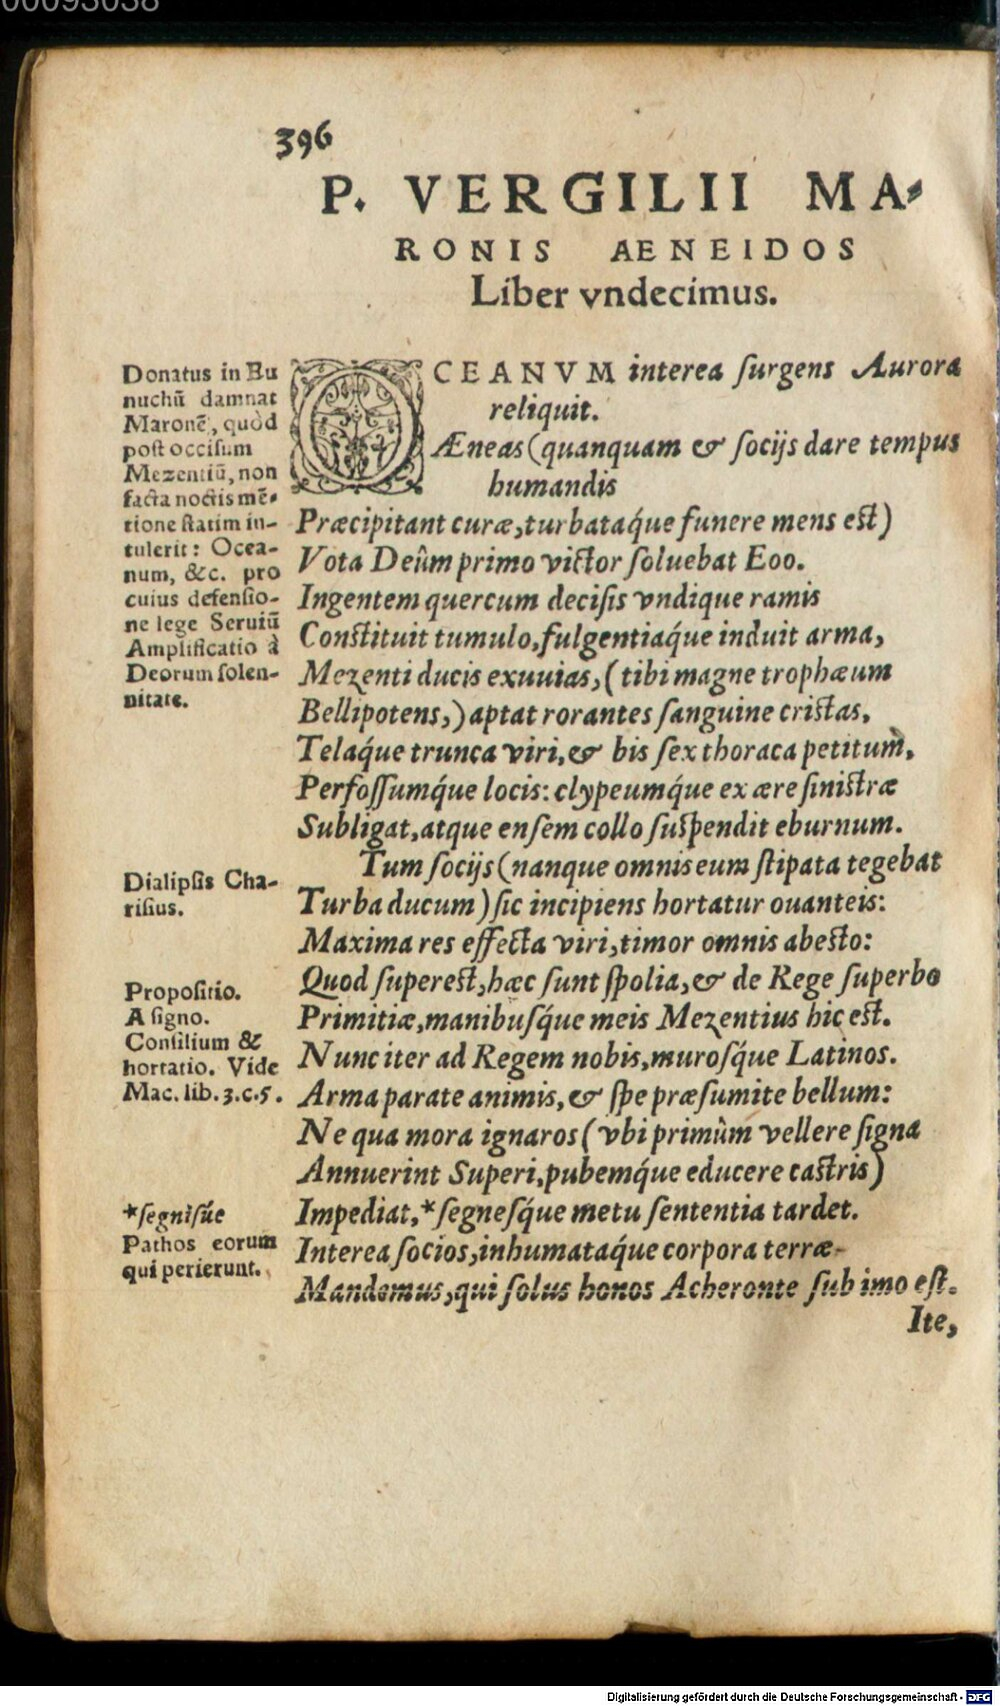 00093038
396
P. VERGILII MA-
RONIS AENEIDOS
Liber vndecimus.
OCEANVM interea surgens Aurora
reliquit.
Æneas (quanquam & socijs dare tempus
humandis
Præcipitant curæ, turbataq́ue funere mens est)
Vota Deûm primo victor soluebat Eoo.
Ingentem quercum decisis vndique ramis
Constituit tumulo, fulgentiaq́ue induit arma,
Mezenti ducis exuuias, (tibi magne trophæum
Bellipotens,) aptat rorantes sanguine cristas,
Telaq́ue trunca viri, & bis sex thoraca petitum,
Perfossumq́ue locis: clypeumq́ue ex ære sinistræ
Subligat, atque ensem collo suspendit eburnum.
Tum socijs (nanque omnis eum stipata tegebat
Turba ducum) sic incipiens hortatur ouanteis:
Maxima res effecta viri, timor omnis abesto:
Quod superest, hæc sunt spolia, & de Rege superbo
Primitiæ, manibusq́ue meis Mezentius hic est.
Nunc iter ad Regem nobis, murosq́ue Latinos.
Arma parate animis, & spe præsumite bellum:
Ne qua mora ignaros (vbi primùm vellere signa
Annuerint Superi, pubemq́ue educere castris)
Impediat, *segnesq́ue metu sententia tardet.
Interea socios, inhumataq́ue corpora terræ
Mandemus, qui solus honos Acheronte sub imo est.
Ite,
Donatus in Eu
nuchū damnat
Maronē, quòd
post occisum
Mezentiū, non
facta noctis mē-
tione statim in-
tulerit: Ocea-
num, &c. pro
cuius defensio-
ne lege Seruiū
Amplificatio à
Deorum solen-
nitate.
Dialipsis Cha-
risius.
Propositio.
A signo.
Consilium &
hortatio. Vide
Mac. lib. 3. c. 5.
*segnisúe
Pathos eorum
qui perierunt.
Digitalisierung gefördert durch die Deutsche Forschungsgemeinschaft - DFG